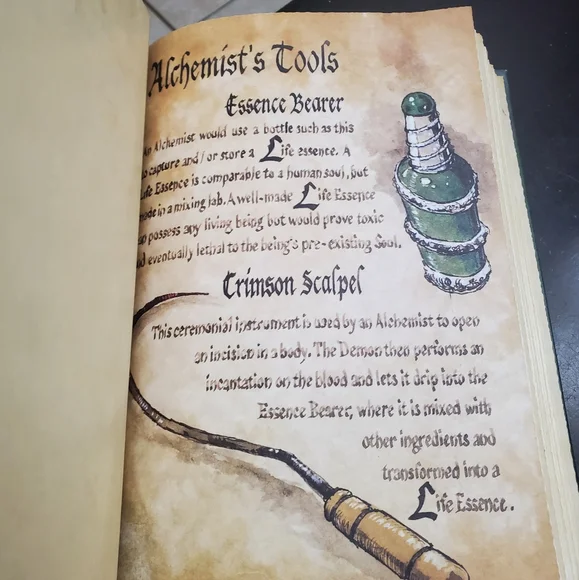 Alchemist's Tools
Essence Bearer
An Alchemist would use a bottle such as this
to capture and/or store a Life essence. A
Life Essence is comparable to a human soul, but
made in a mixing lab. A well-made Life Essence
can possess any living being but would prove toxic
and eventually lethal to the being's pre-existing Soul.
Crimson Scalpel
This ceremonial instrument is used by an Alchemist to open
an incision in a body. The Demon then performs an
incantation on the blood and lets it drip into the
Essence Bearer, where it is mixed with
other ingredients and
transformed into a
Life Essence.